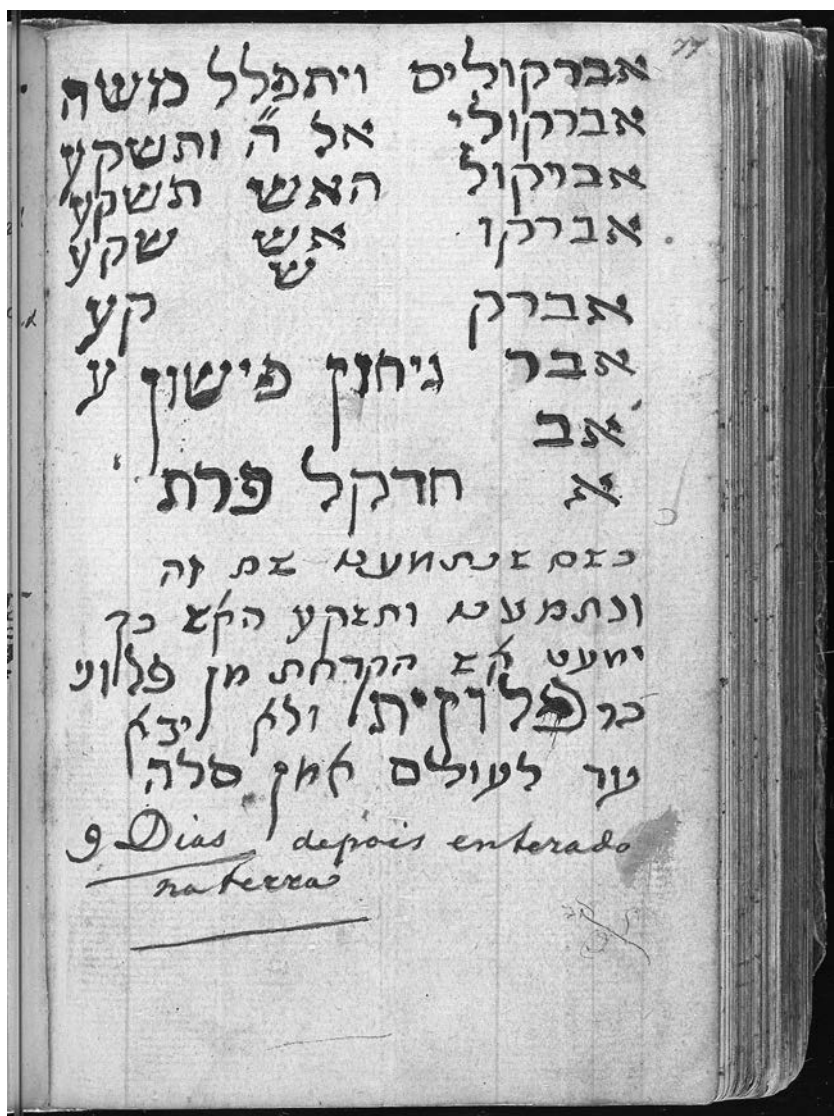 77
אברקולים ויתפלל משה
אברקולי אל ה" ותשקע
אבריקול האש תשקע
אברקו אש שקע
ש
אברק קע
אבר גיחון פישון ע
אב
א חדקל פרת
כשם שנתמעט שם זה
ונתמעט ותשקע האש כך
ימעט אש הקדחת מן פלוני
בר פלונית ולא יבא
עוד לעולם אמן סלה
9 Dias depois enterado
na terra